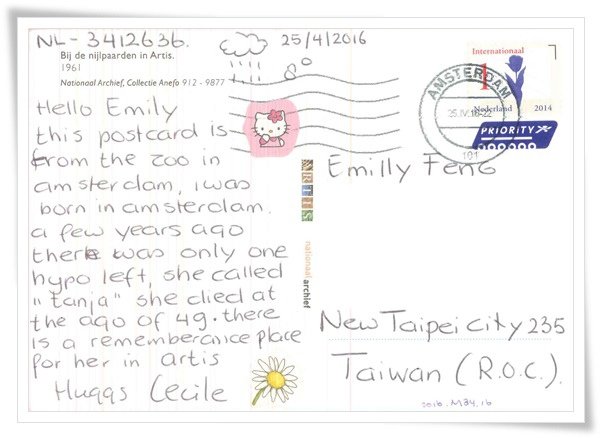 NL-3412636.
25/4/2016
Bij de nijlpaarden in Artis.
1961
Nationaal Archief, Collectie Anefo 912 - 9877
8°
Hello Emily
this postcard is
from the zoo in
amsterdam, i was
born in amsterdam.
a few years ago
there was only one
hypo left, she called
"tanja" she died at
the ago of 49. there
is a rememberance place
for her in artis
Huggs Cecile
ARTIS
nationaalarchief
Internationaal
1
Nederland 2014
AMSTERDAM
25.IV.16-22
101
PRIORITY
Emilly Feng
New Taipei City 235
Taiwan (R.O.C.).
2016.May.16